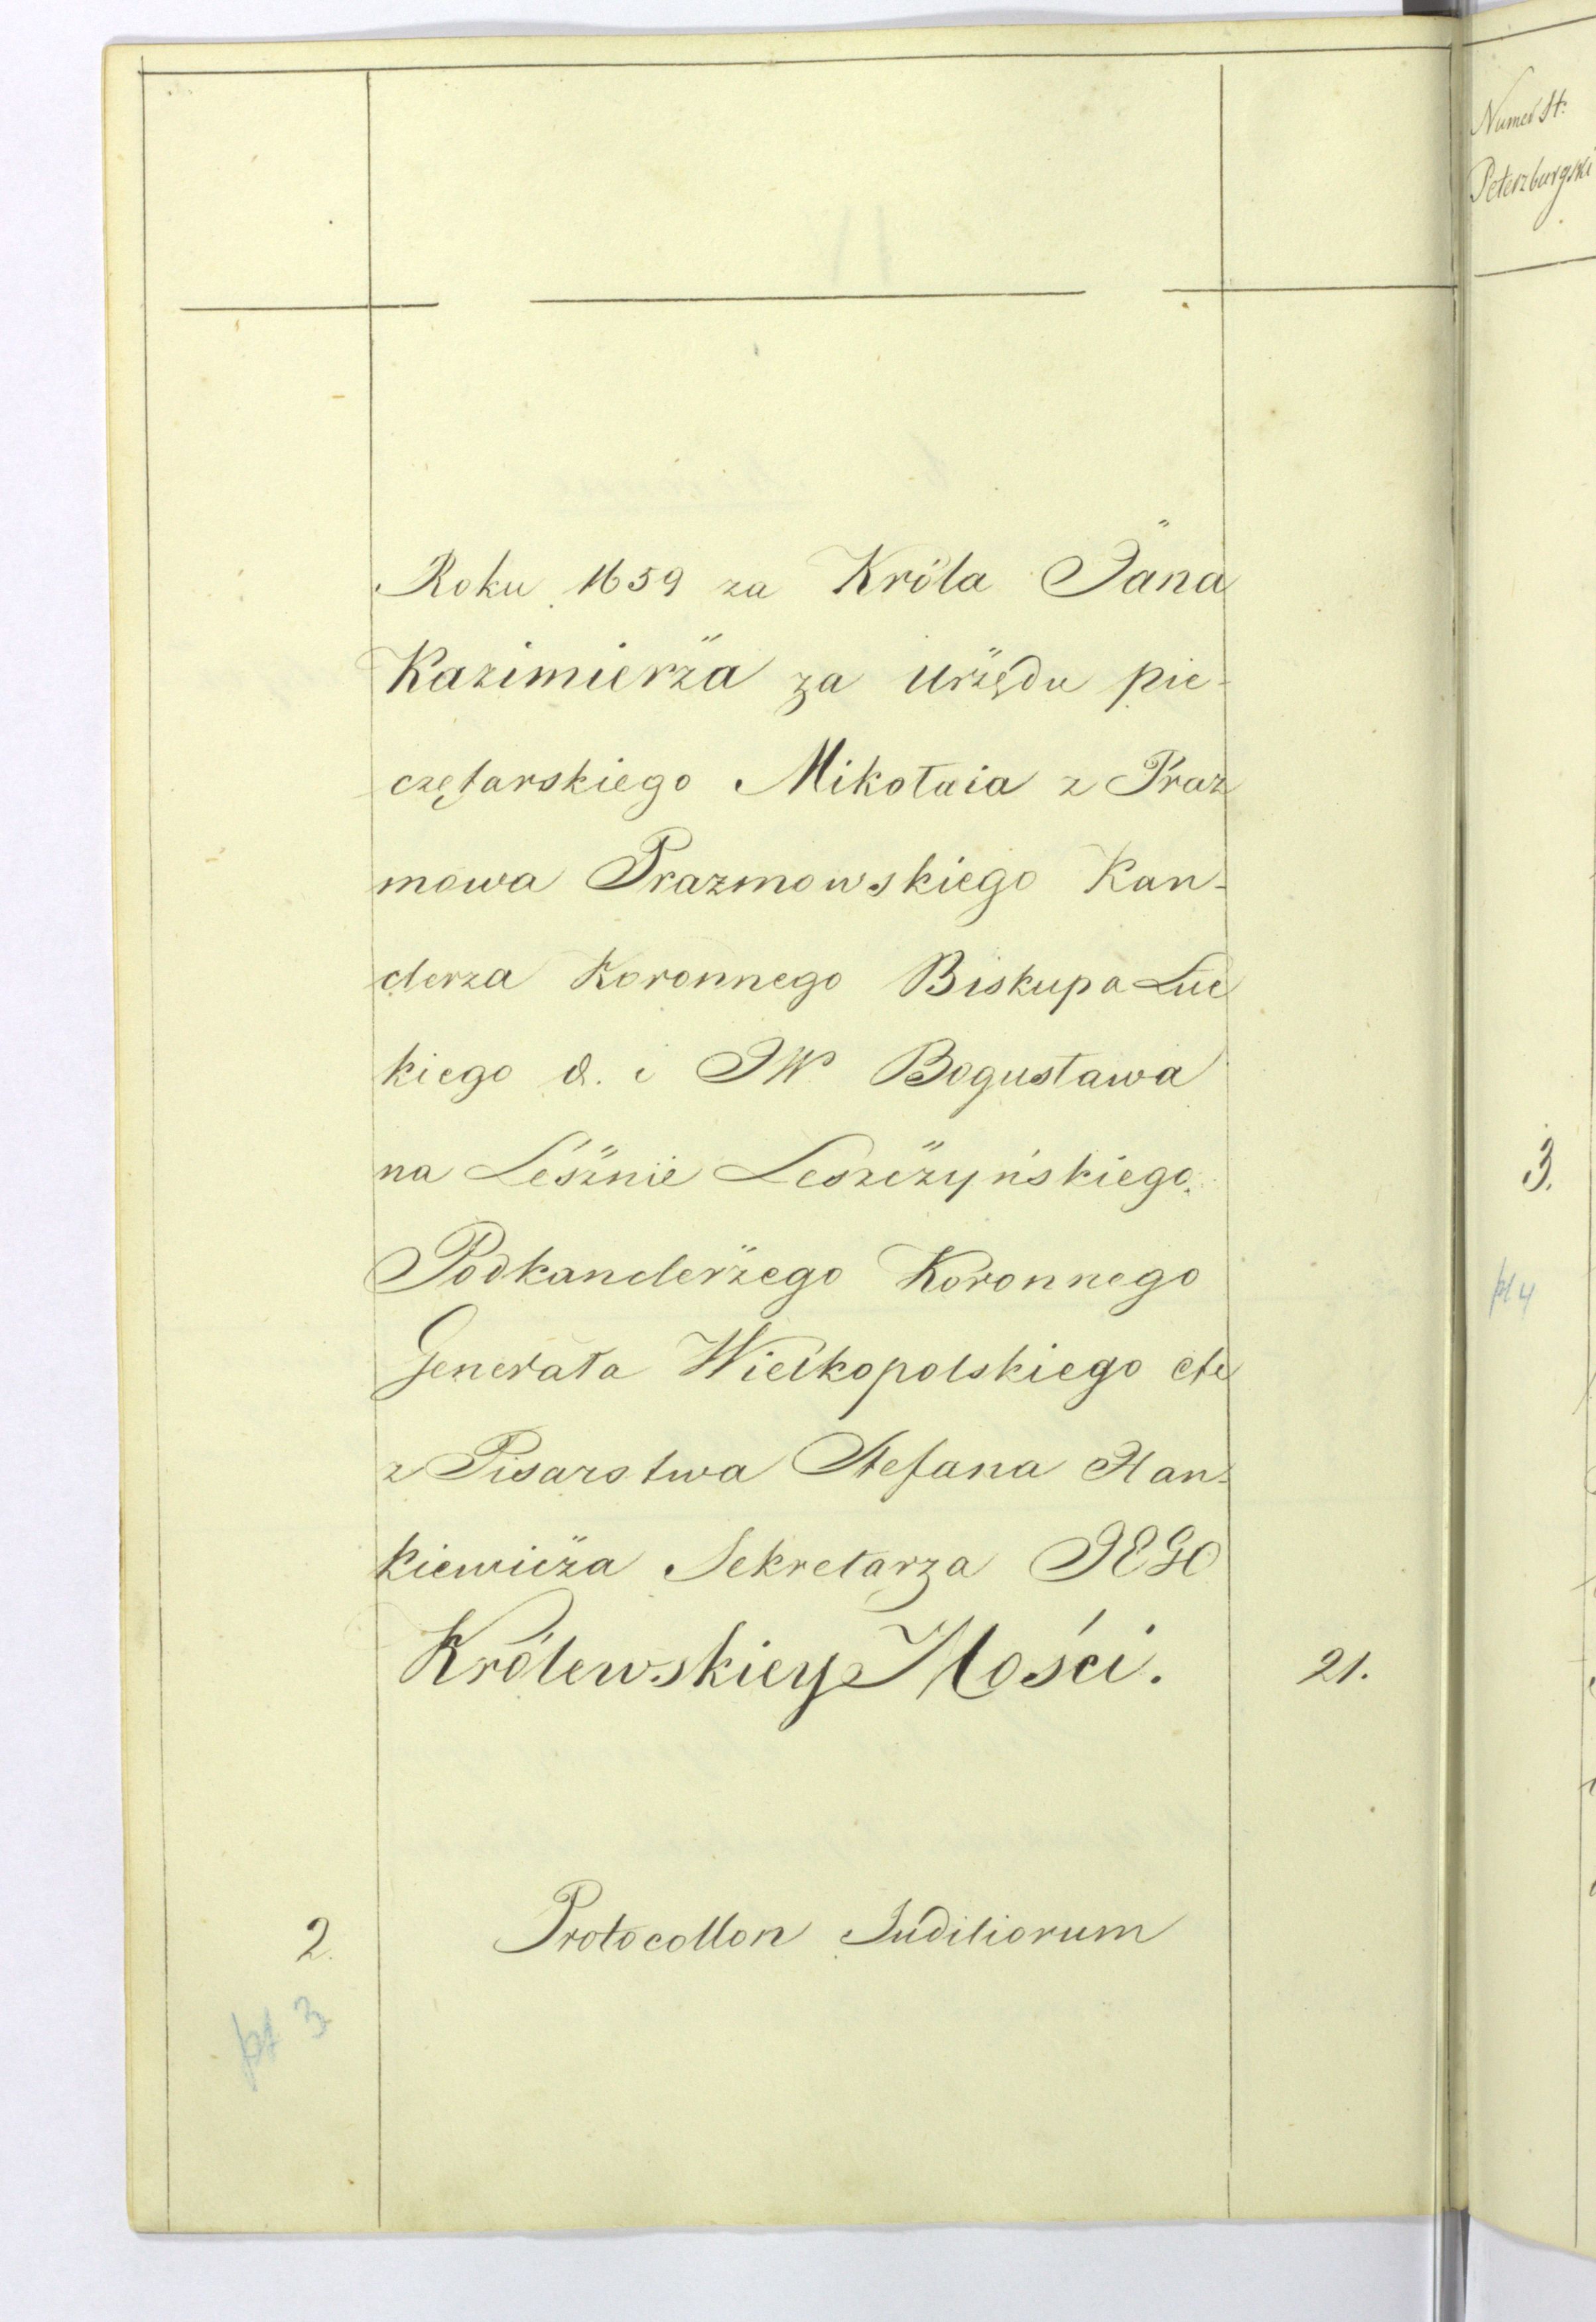 Roku 1659 za Króla Jana
Kazimierza za Urzędu pie-
czętarskiego Mikołaia z Praz
mowa Prazmowskiego Kan-
clerza Koronnego Biskupa Luc
kiego &. i JW Bogusława
na Lesznie Leszczyńskiego
Podkanclerzego Koronnego
Generała Wielkopolskiego etc
z Pisarstwa Stefana Han-
kiewicza Sekretarza JEGO
Królewskiey Mości. 21.
2. Protocollon Iuditiorum
pt 3
Numer St:
Peterzburgski
3.
pt 4